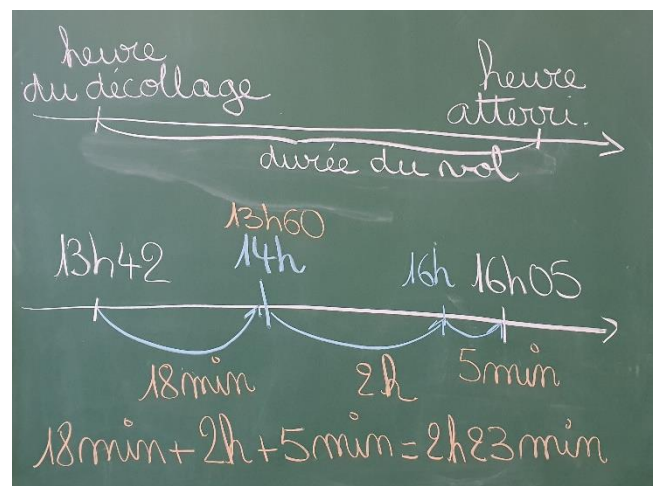 heure
du décollage
heure
atterri.
durée du vol
13h60
13h42
14h
16h
16h05
18min
2h
5min
18min+2h+5min=2h23min